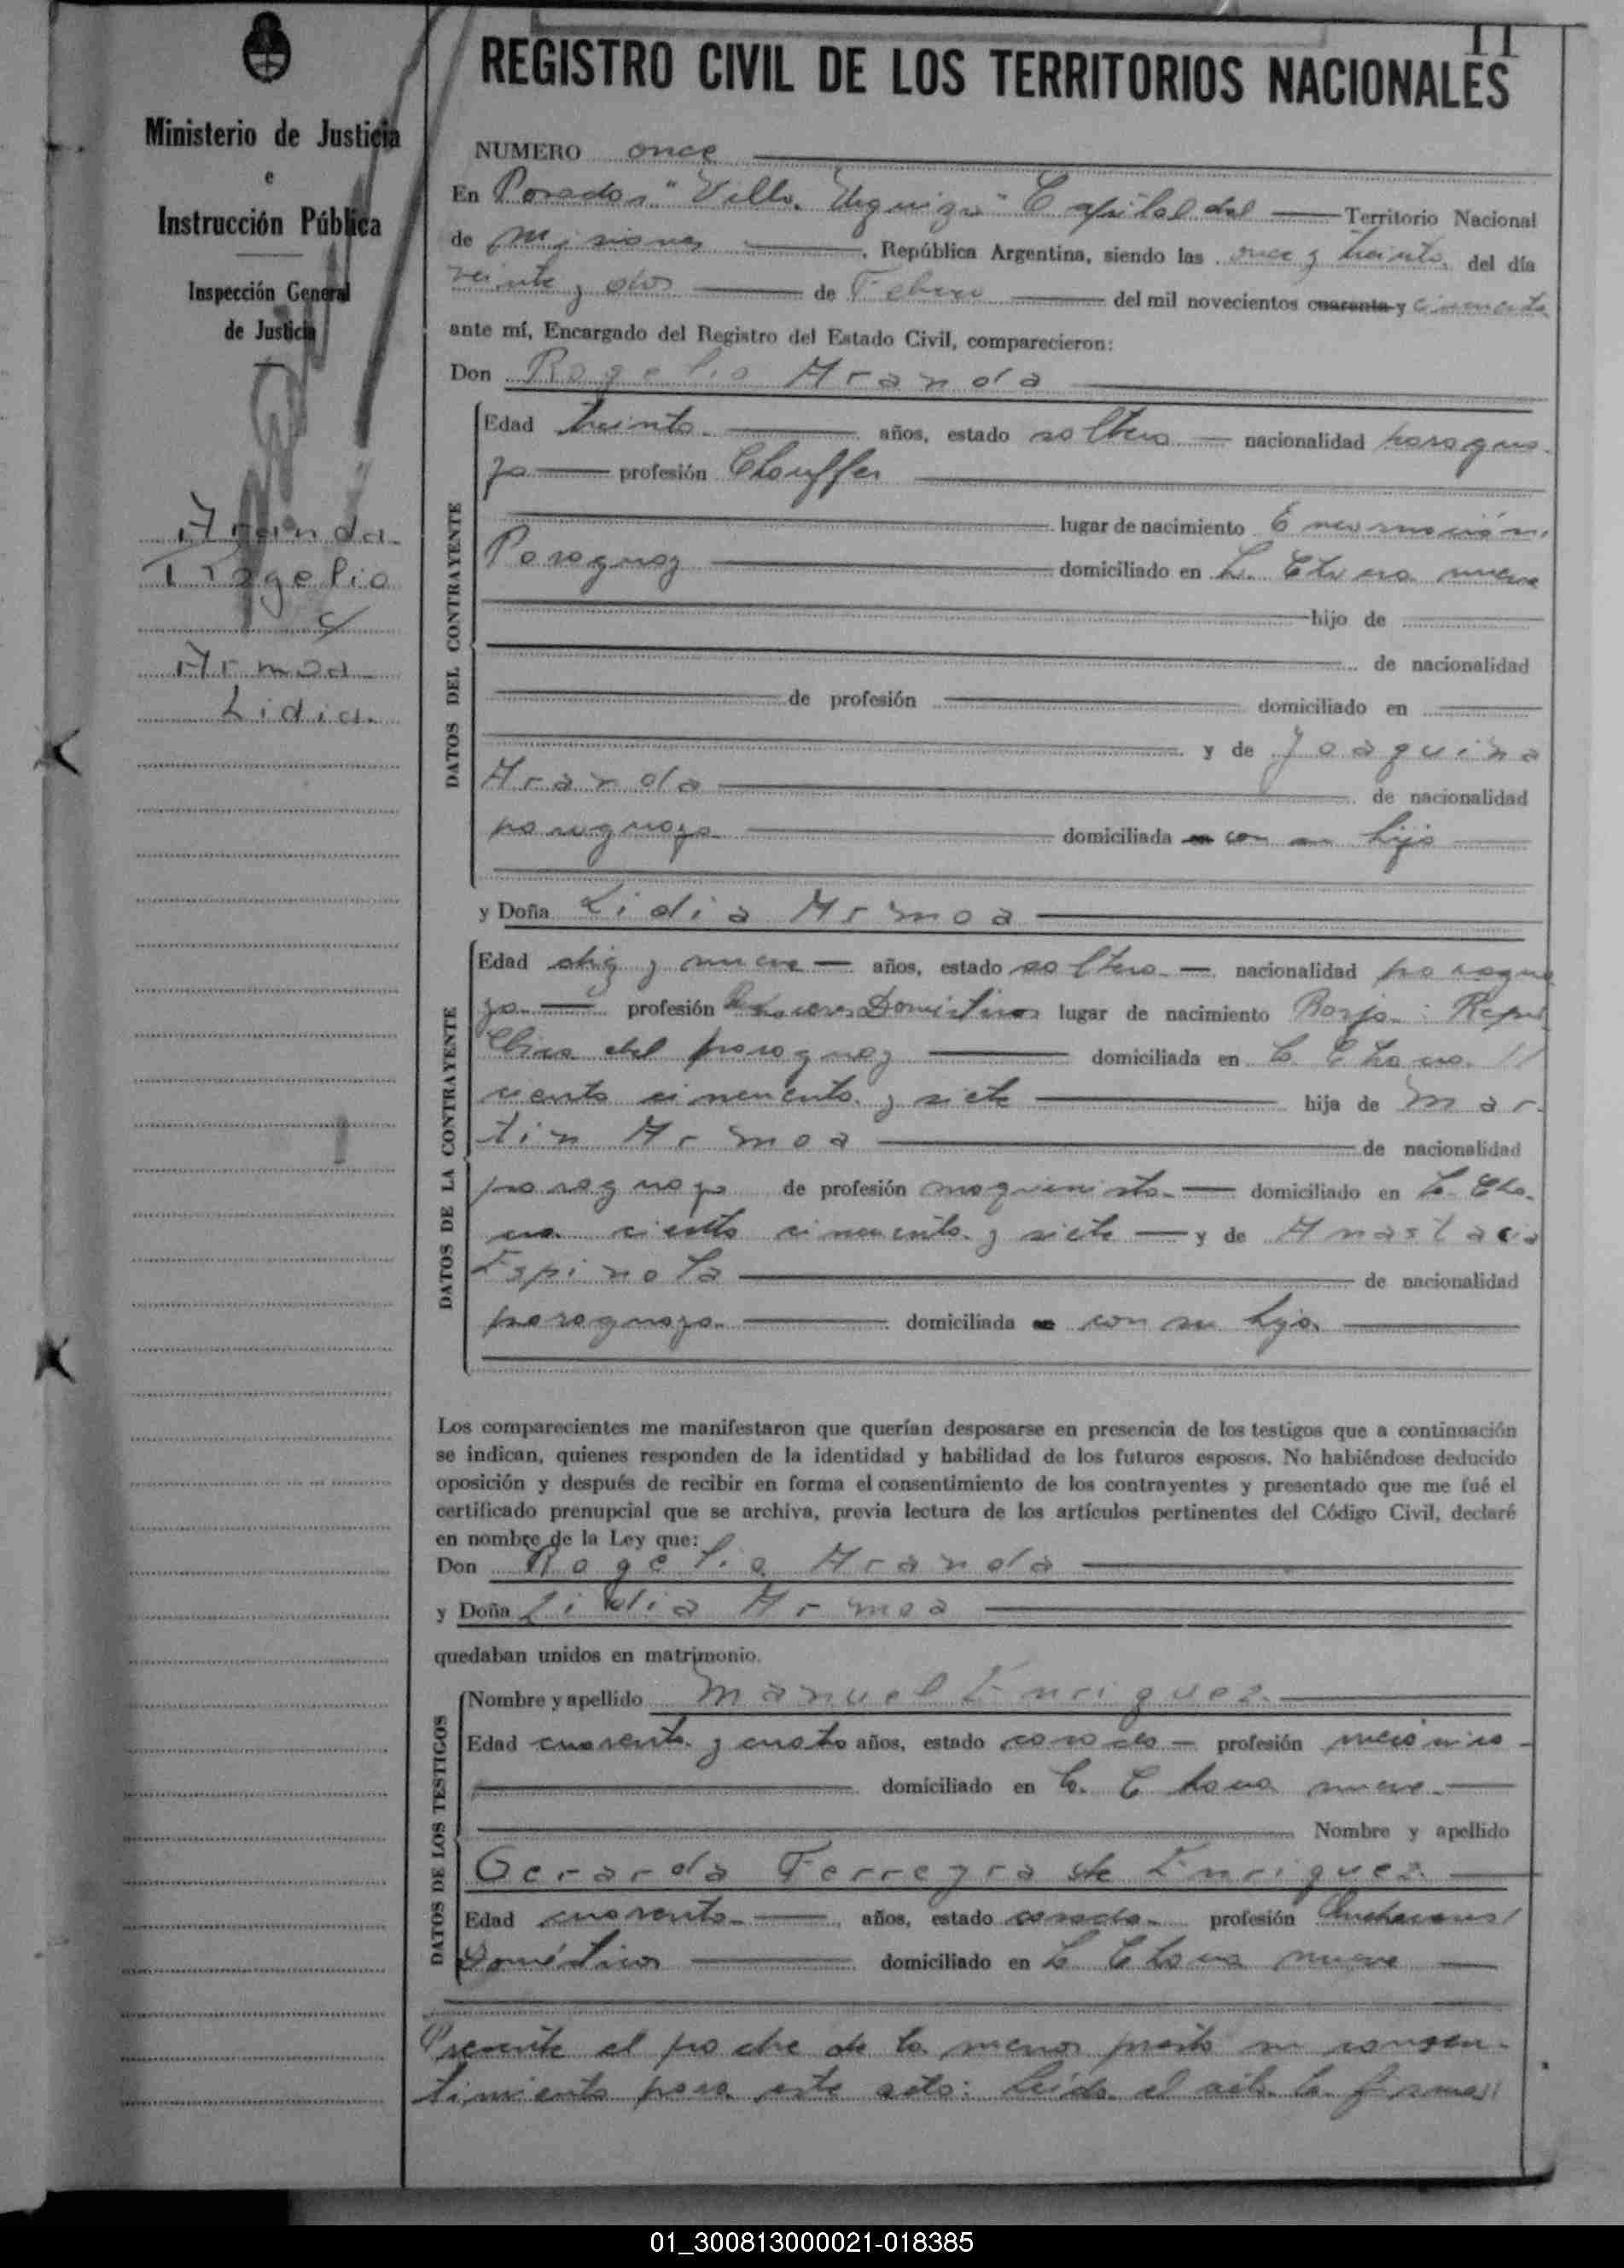 11
REGISTRO CIVIL DE LOS TERRITORIOS NACIONALES
Ministerio de Justicia
e
Instrucción Pública
Inspección General
de Justicia
Aranda
Rogelio
y
Armoa
Lidia
NUMERO once
En Posadas "Villa Urquiza" Capital del Territorio Nacional
de Misiones, República Argentina, siendo las once y treinta del día
veinte y dos de Febrero del mil novecientos cuarenta y cincuenta
ante mí, Encargado del Registro del Estado Civil, comparecieron:
Don Rogelio Aranda
DATOS DEL CONTRAYENTE
Edad treinta años, estado soltero nacionalidad paragua-
yo profesión Chouffer
lugar de nacimiento Encarnación.
Paraguay domiciliado en La Chacra nueve
hijo de
de nacionalidad
de profesión domiciliado en
y de Joaquina
Aranda de nacionalidad
paraguaya domiciliada en con su hijo
y Doña Lidia Armoa
DATOS DE LA CONTRAYENTE
Edad diez y nueve años, estado soltera nacionalidad paragua
ya profesión Quehaceres Domésticos lugar de nacimiento Borja: Repú
blica del paraguay domiciliada en La Chacra
ciento cincuenta y siete hija de Mar-
tin Armoa de nacionalidad
paraguayo de profesión maquinista domiciliado en La Cha-
cra ciento cincuenta y siete y de Anastacia
Espinola de nacionalidad
paraguaya domiciliada en con su hija
Los comparecientes me manifestaron que querían desposarse en presencia de los testigos que a continuación
se indican, quienes responden de la identidad y habilidad de los futuros esposos. No habiéndose deducido
oposición y después de recibir en forma el consentimiento de los contrayentes y presentado que me fué el
certificado prenupcial que se archiva, previa lectura de los artículos pertinentes del Código Civil, declaré
en nombre de la Ley que:
Don Rogelio Aranda
y Doña Lidia Armoa
quedaban unidos en matrimonio.
DATOS DE LOS TESTIGOS
Nombre y apellido Manuel Enriquez
Edad cuarenta y cuatro años, estado casado profesión mecánico
domiciliado en La Chacra nueve
Nombre y apellido
Gerarda Ferreyra de Enriquez
Edad cuarenta años, estado casada profesión Quehaceres
Domésticos domiciliado en La Chacra nueve
Presente el padre de la menor presta su consen-
timiento para este acto: Leída el acta la firman
01_300813000021-018385